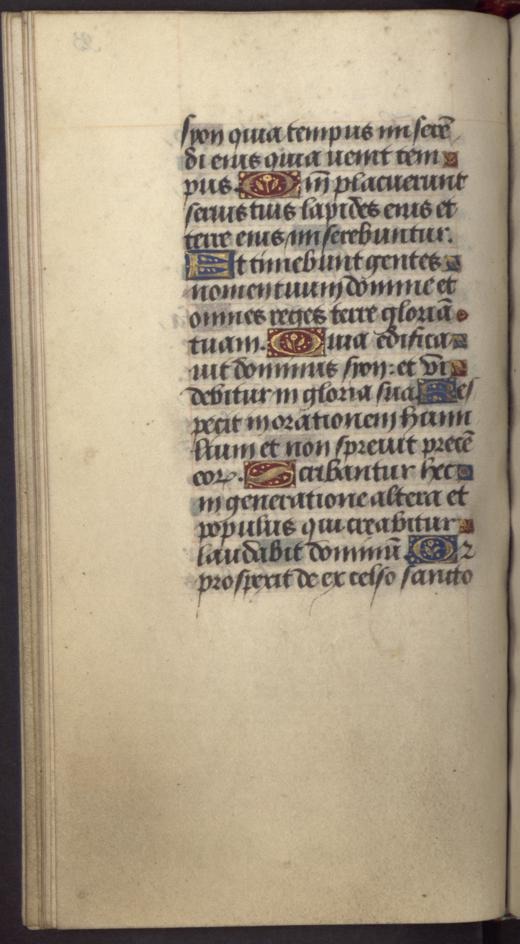 syon quia tempus miserē
di eius quia uenit tem
pus. Qm̄ placuerunt
seruis tuis lapides eius et
terre eius miserebuntur.
Et timebunt gentes
nomen tuum domine et
omnes reges terre gloriā
tuam. Quia edifica
uit dominus syon: et vi
debitur in gloria sua. Res
pexit in orationem humi
lium et non spreuit precē
eoꝝ. Scribantur hec
in generatione altera et
populus qui creabitur
laudabit dominū. Qꝛ
prospexit de excelso sancto